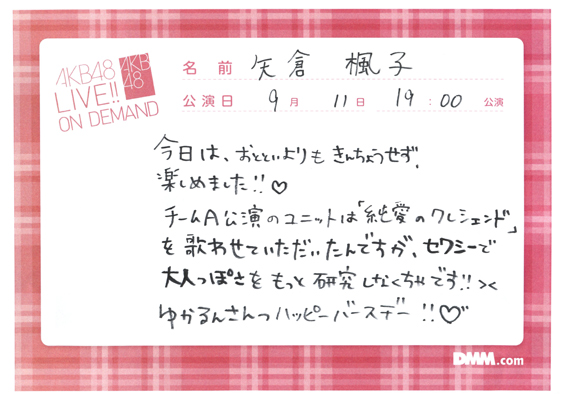 AKB48
LIVE!!
ON DEMAND
AKB
48
名前 矢倉 楓子
公演日 9月 11日 19:00 公演
今日は、おとといよりも きんちょうせず、
楽しめました!!♡
チームA公演のユニットは「純愛のクレシェンド」
を歌わせていただいたんですが、セクシーで
大人っぽさをもっと研究しなくちゃです!!><
ゆかるんさんっハッピーバースデー!!♡
DMM.com